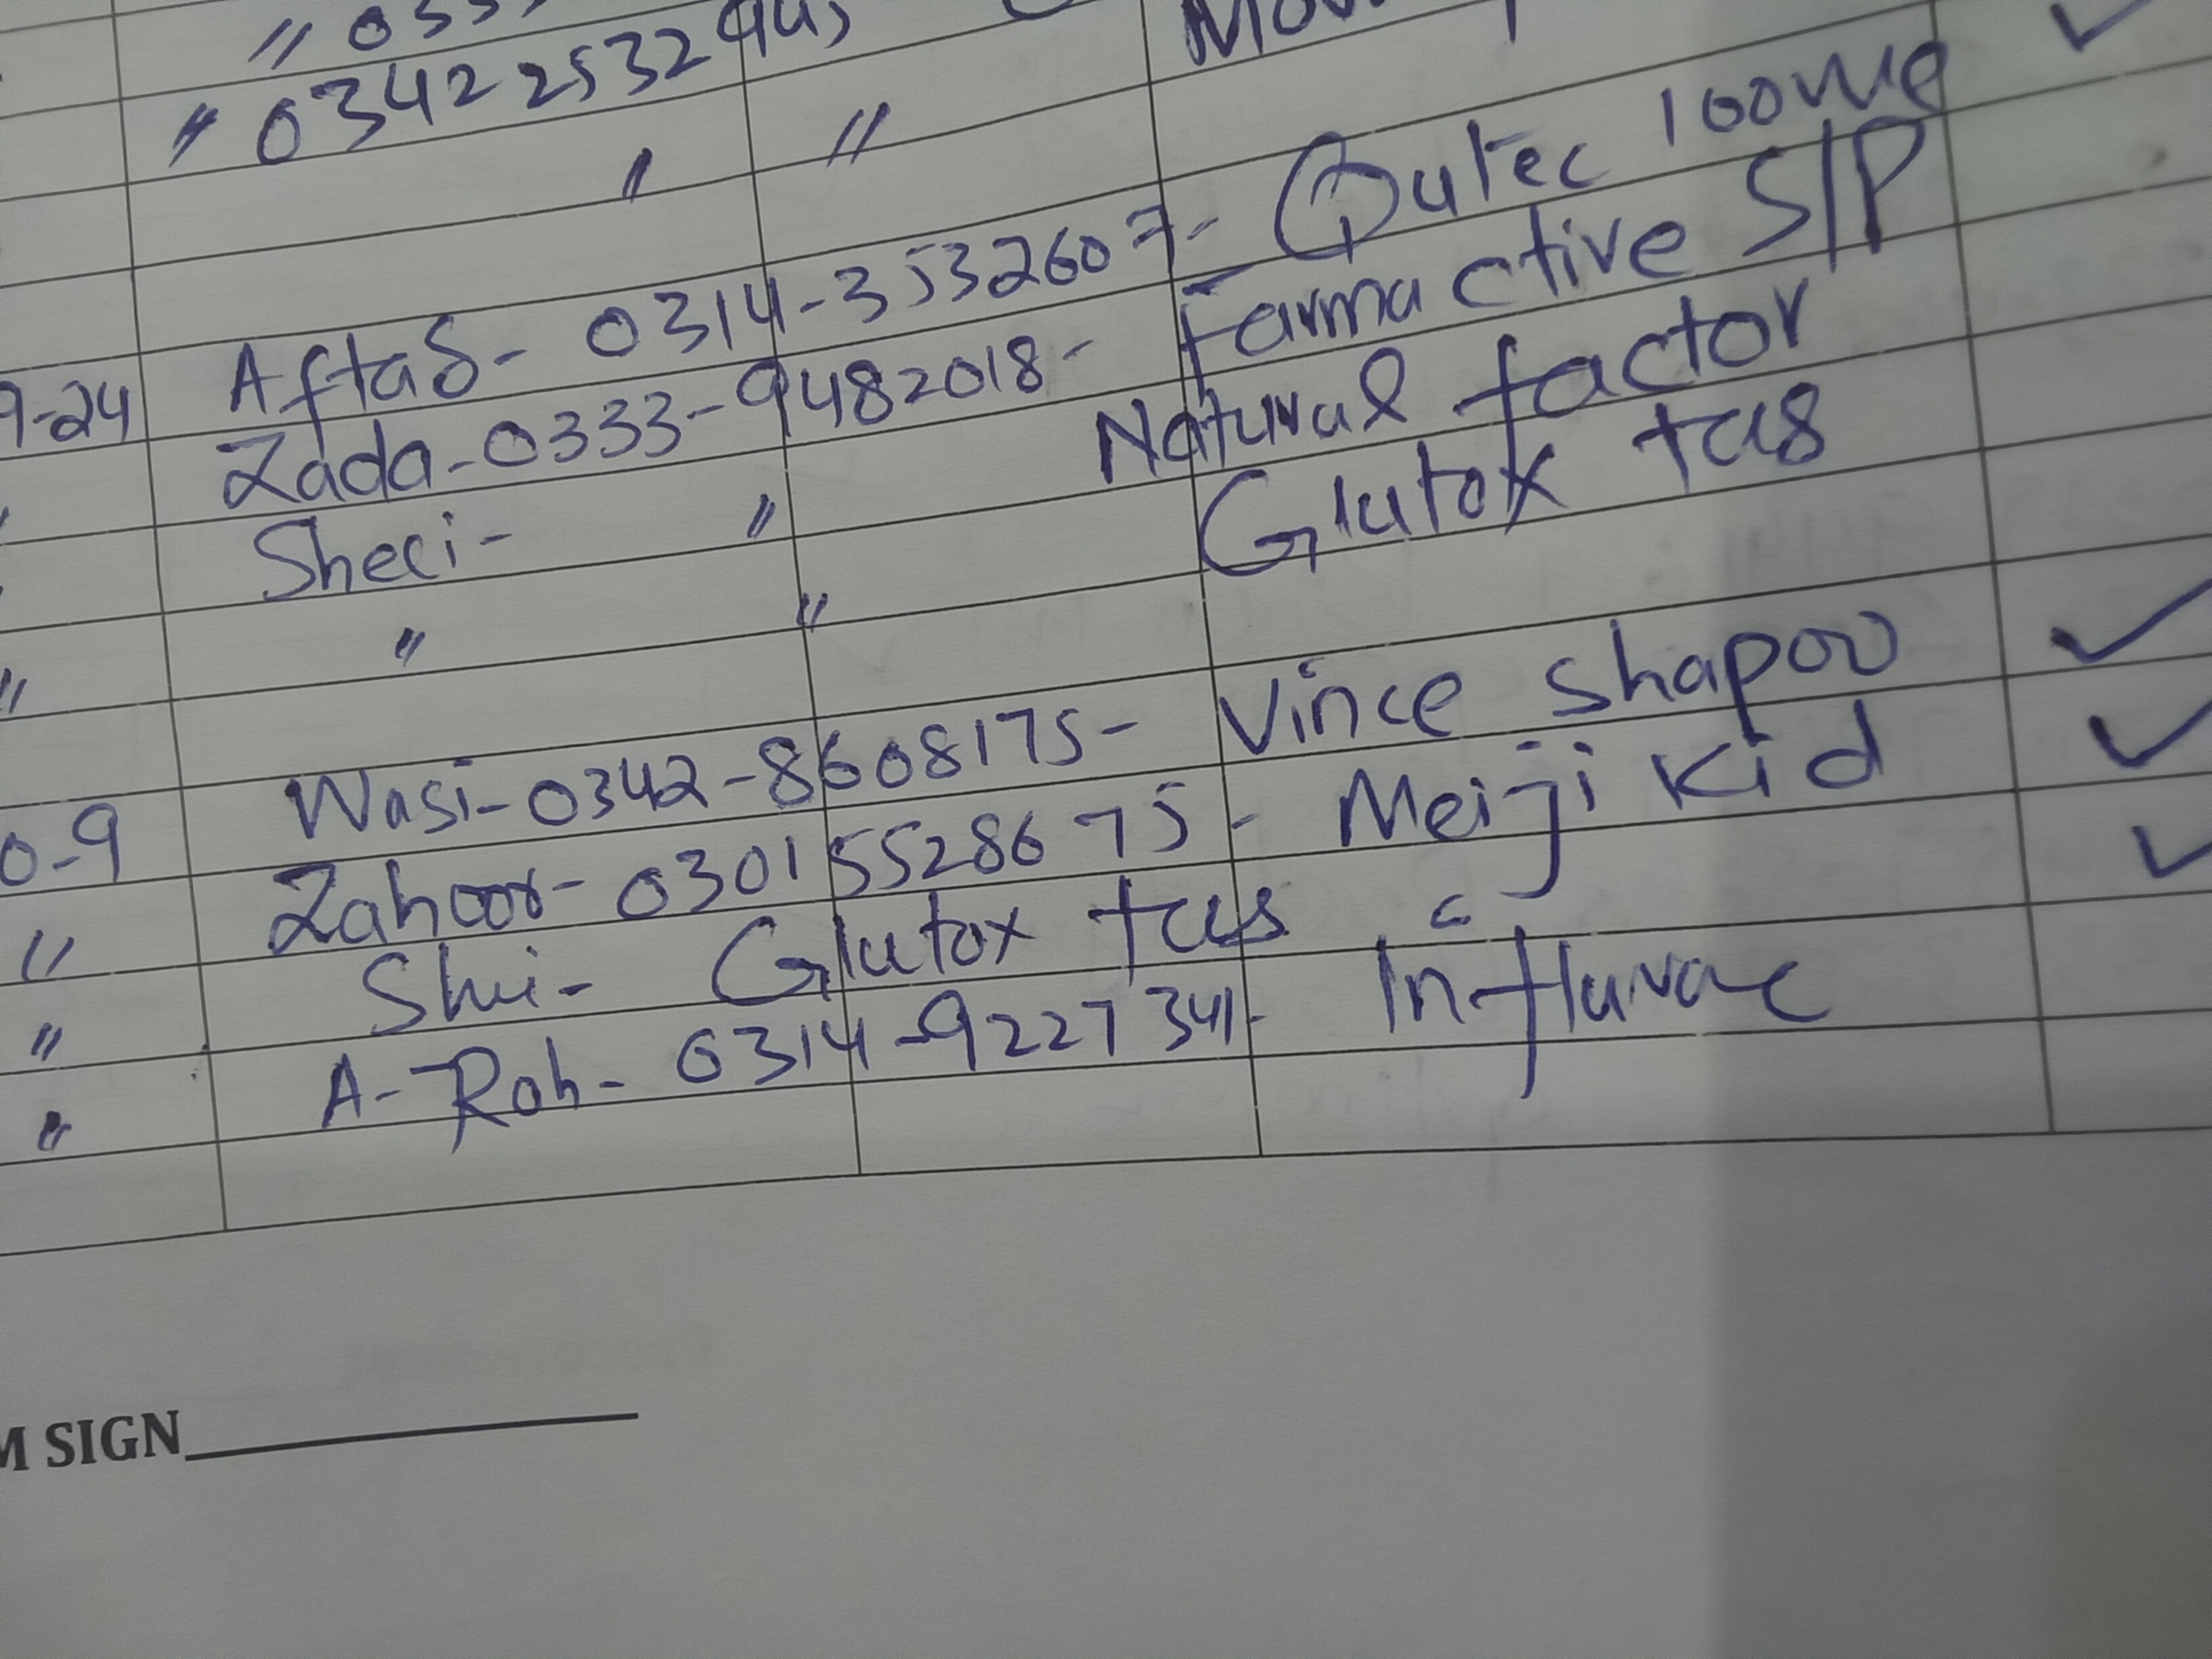 〃 0342 2532
〃 〃
Aftab - 0314-3532607 - Qutec 100mg
9-24 Zada - 0333-9482018 - Farmactive S/P
Sheri - 〃 Natural factor
〃 〃 〃 Glutox tab
Wasi - 0342-8608175 - Vince shapoo
0-9 Zahoor - 03015528675 - Meiji Kid
〃 Shri - Glutox tab
〃 A-Rah - 0314-9227341 - Influvac
〃
M SIGN